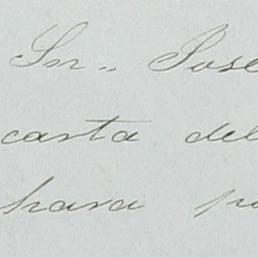 Sr. José
carta del
para p